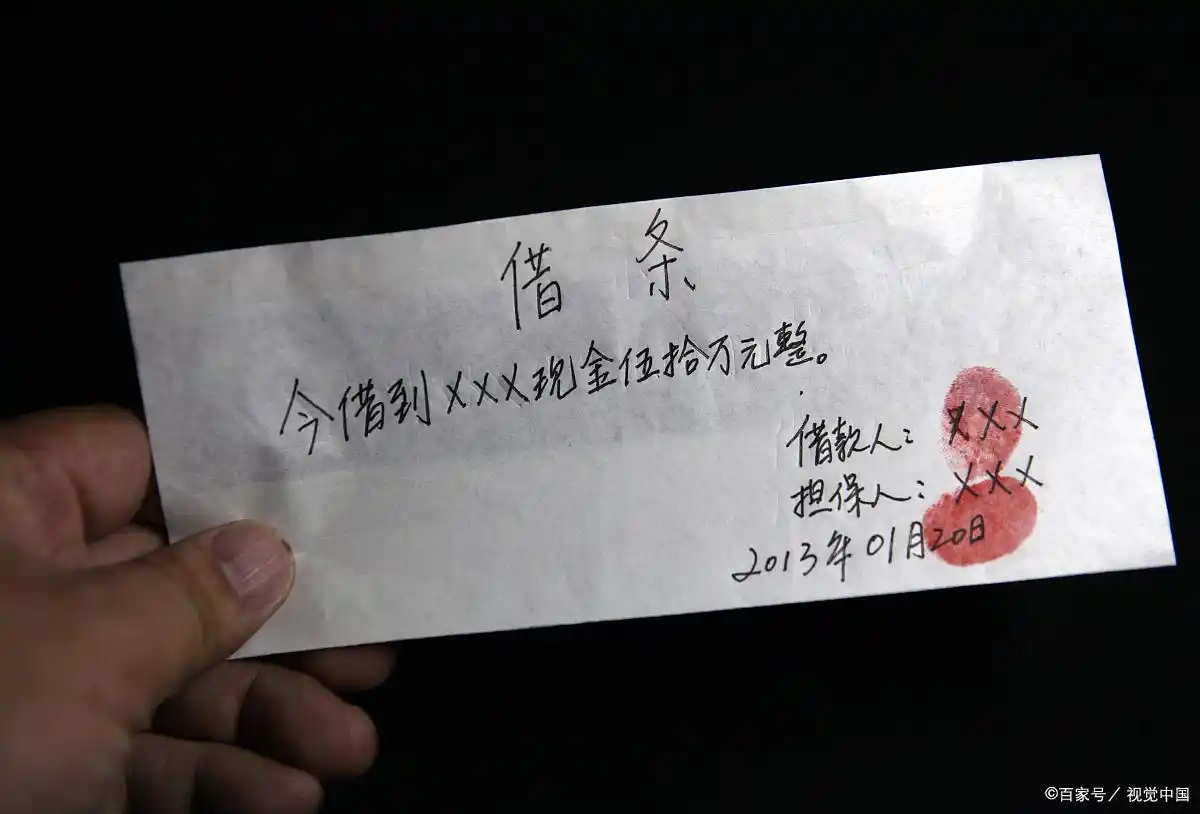 借 条
今借到XXX现金伍拾万元整。
借款人：XXX
担保人：XXX
2013年01月20日
©百家号／视觉中国